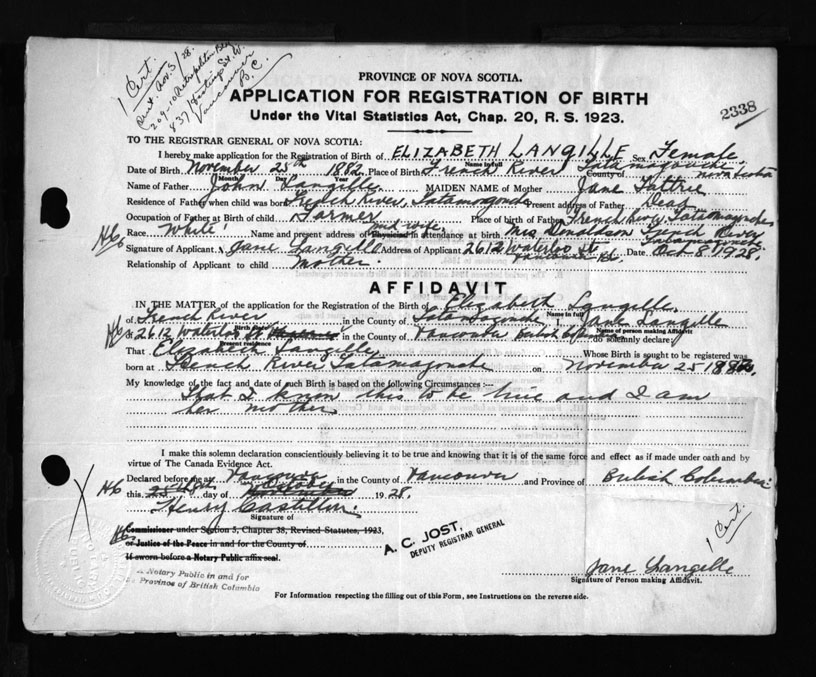 1 Cert.
Cert. Nov. 5/28.
209-10 Metropolitan Bldg
837 Hastings St. W.
Vancouver
B.C.
PROVINCE OF NOVA SCOTIA.
APPLICATION FOR REGISTRATION OF BIRTH
Under the Vital Statistics Act, Chap. 20, R. S. 1923.
2338
TO THE REGISTRAR GENERAL OF NOVA SCOTIA:
I hereby make application for the Registration of Birth of ELIZABETH LANGILLE Sex Female
Name in full
Date of Birth November 25th 1882 Place of Birth French River County of Nova Scotia
Month Day Year
Name of Father John Langille MAIDEN NAME of Mother Jane Tattrie
Residence of Father when child was born French River, Tatamagouche Present address of Father Dead
Occupation of Father at Birth of child Farmer Place of birth of Father French River Tatamagouche
H6 Race White Name and present address of Physician mid wife in attendance at birth Mrs Donaldson French River
Tatamagouche
Signature of Applicant Jane Langille Address of Applicant 2612 Waterloo St Date Oct 8 1928.
Relationship of Applicant to child mother
AFFIDAVIT
IN THE MATTER of the application for the Registration of the Birth of Elizabeth Langille
Name in full
of French River in the County of Tatamagouche I Jane Langille
Birth Place Name of person making Affidavit
of 2612 Waterloo St in the County of Vancouver British Columbia do solemnly declare:
Present residence
That Elizabeth Langille Whose Birth is sought to be registered was
born at French River Tatamagouche on November 25 1882.
My knowledge of the fact and date of such Birth is based on the following Circumstances :—
That I know this to be true and I am
her mother
I make this solemn declaration conscientiously believing it to be true and knowing that it is of the same force and effect as if made under oath and by
virtue of The Canada Evidence Act.
Declared before me at Vancouver in the County of Vancouver and Province of British Columbia
H6 this day of October 1928.
Henry Castillou
Signature of
Commissioner under Section 5, Chapter 38, Revised Statutes, 1923,
or Justice of the Peace in and for the County of
If sworn before a Notary Public affix seal.
A Notary Public in and for
the Province of British Columbia
A. C. JOST,
DEPUTY REGISTRAR GENERAL
1 Cert.
Jane Langille
Signature of Person making Affidavit.
For Information respecting the filling out of this Form, see Instructions on the reverse side.